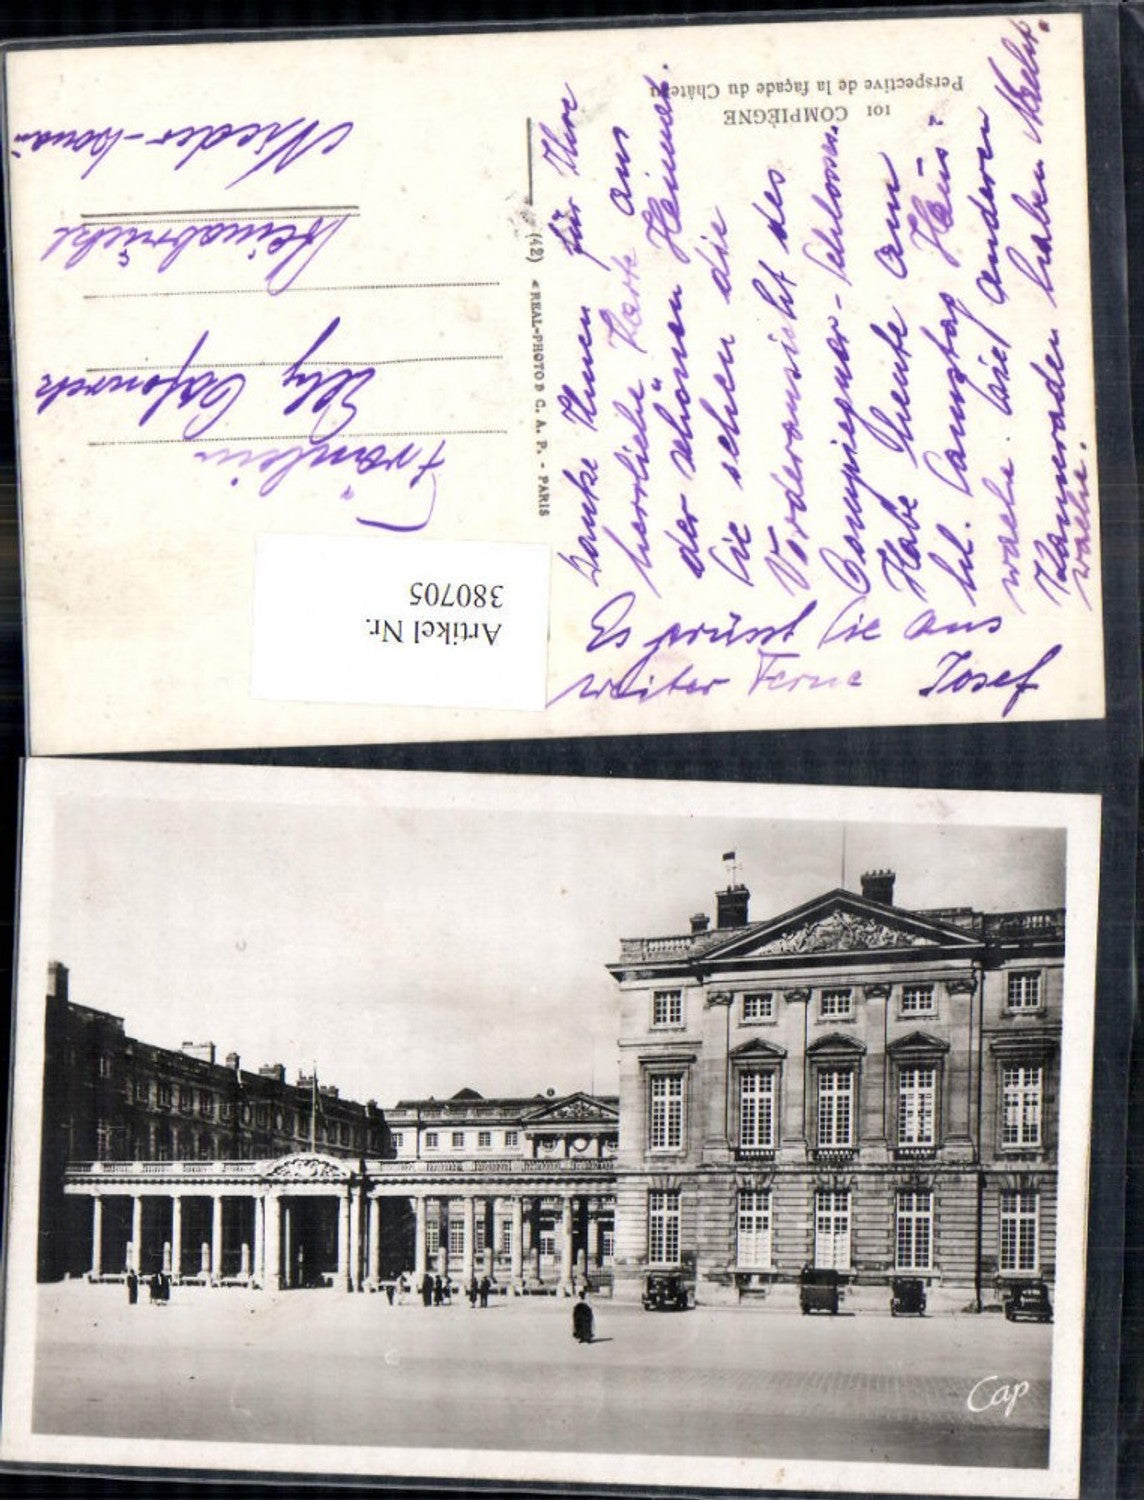 101 COMPIÈGNE
Perspective de la façade du Château
Danke Ihnen für Ihre
herrliche Karte aus
der schönen Heimat.
Sie sehen die
Vorderansicht des
Compiegner-Schlosses.
Habe heute am
hl. Samstag Haus-
wache. Die anderen
Kameraden haben Nacht-
wache.
Es grüsst Sie aus
weiter Ferne Josef
(42) « REAL-PHOTO » C. A. P. - PARIS
Fräulein
Elly
Steinabrückl
Nieder-Donau
Artikel Nr.
380705
Cap